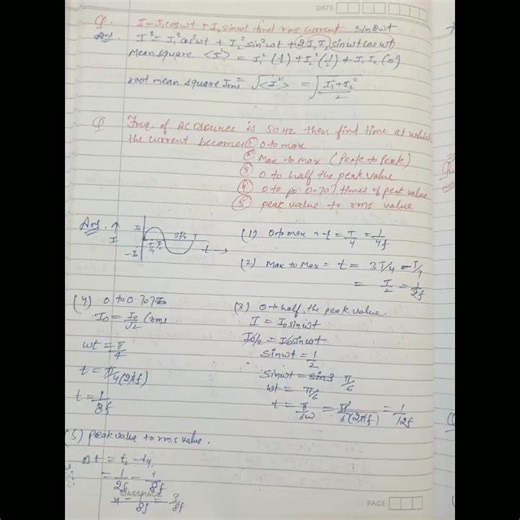 DATE
Q. I = I₁ coswt + I₂ sinwt find rms current.
sin2wt
Ans. I² = I₁² cos²wt + I₂² sin²wt + 2I₁I₂ sinwt coswt
Mean square <I²> = I₁² (1/2) + I₂² (1/2) + I₁ I₂ (0)
root mean square Irms = √<I²> = √(I₁²+I₂²)/2
Q Freq. of AC source is 50 Hz then find time at which
the current becomes ① 0 to max
② Max to max (peak to peak)
③ 0 to half the peak value
④ 0 to 0.707 times of peak value
⑤ peak value to rms value
Ans.
I
-I₀
t
(1) 0 to max = t = T/4 = 1/4f
(2) Max to Max = t = 3T/4 - T/4
= T/2 = 1/2f
(4) 0 to 0.707 I₀
I₀ = I₀/√2 (rms
wt = π/4
t = π/4(2πf)
t = 1/8f
(3) 0 to half the peak value.
I = I₀ sinwt
I₀/2 = I₀ sinwt
sinwt = 1/2
sinwt = sin π/6
wt = π/6
t = π/6w = π/6(2πf) = 1/12f
(5) peak value to rms value.
Δt = t₂ - t₄
= 1/2f - 1/8f
= 3/8f
PAGE